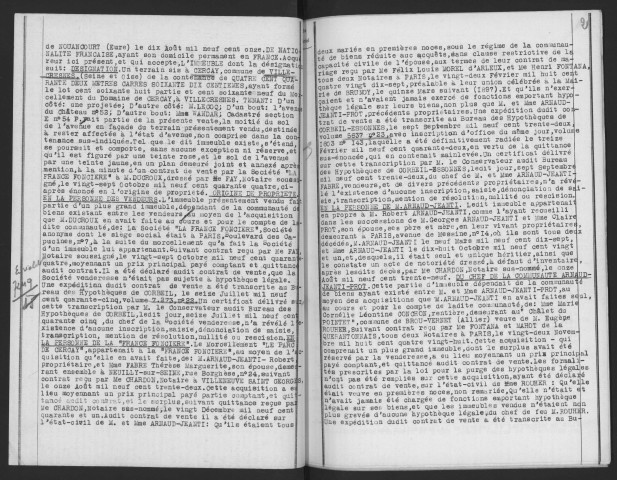 de NOUANCOURT (Eure) le dix Août mil neuf cent onze. DE NATIO
NALITE FRANCAISE, ayant son domicile permanent en FRANCE. Acqué
reur ici présent, et qui accepte, L'IMMEUBLE dont la désignation
suit: DESIGNATION. Un terrain sis à CERCAY, commune de VILLE-
CRESNES, (Seine et Oise) de la contenance de QUATRE CENT QUA-
RANTE DEUX METRES CARRES SOIXANTE DIX CENTIEMES, ayant formé
le lot cent soixante huit partie et cent soixante neuf du Mor
cellement du Domaine de CERCAY, à VILLECRESNES. TENANT: D'un
côté: une projetée; D'autre côté: M. LECOQ; D'un bout: l'avenue
du Château n°58; D'autre bout: Mme WANDAR; Cadastré section
E n°54 P, suit partie de la présente vente, la moitié du sol
de l'avenue en façade du terrain présentement vendu, destinée
à rester affectée à l'état d'avenue, non comprise dans la con
tenance sus-indiquée. Tel que le dit immeuble existe, s'étend,
se poursuit et comporte, sans aucune exception ni réserve, et
qu'il est figuré par une teinte rose, et le sol de l'avenue
par une teinte jaune, en un plan demeuré joint et annexé après
mention, à la minute d'un contrat de vente par la Société "LA
FRANCE FONCIERE" à M. DUCROUX, dressé par Me FAY, Notaire soussi
gné, le vingt-sept octobre mil neuf cent quarante quatre, ci-
après énoncé en l'origine de propriété. ORIGINE DE PROPRIETE
EN LA PERSONNE DES VENDEURS. L'immeuble présentement vendu fait
partie d'un plus grand immeuble, dépendant de la communauté de
biens existant entre les vendeurs, au moyen de l'acquisition
que M. DUCROUX en avait faite au cours et pour le compte de la
dite communauté, de: La Société "LA FRANCE FONCIERE", Société
anonyme dont le siège social était à PARIS, Boulevard des Ca-
pucines, n°7, à la suite du morcellement qu'a fait la Société
d'un immeuble lui appartenant. Suivant contrat reçu par Me FAY,
Notaire soussigné, le vingt-sept Octobre mil neuf cent quarante
quatre, moyennant un prix principal payé comptant et quittancé
audit contrat. Il a été déclaré audit contrat de vente, que la
Société venderesse n'était pas sujette à hypothèque légale.
Une expédition dudit contrat de vente a été transcrite au Bu-
reau des Hypothèques de CORBEIL, le seize Juillet mil neuf
cent quarante-cinq, volume 7.273, n°22. Un certificat délivré sur
cette transcription par M. le Conservateur audit Bureau des
Hypothèques de CORBEIL, ledit jour, seize Juillet mil neuf cent
quarante cinq, du chef de la société venderesse, n'a révélé l'e-
xistence d'aucune inscription, saisie, dénonciation de saisie,
transcription, mention de résolution, nullité ou rescision. EN
LA PERSONNE DE LA "FRANCE FONCIERE". Le morcellement "LE PARC
DE CERCAY", appartenait à la "FRANCE FONCIERE", au moyen de l'ac-
quisition qu'elle en avait faite, de: M. ARNAUD-JEANTI- Robert,
propriétaire, et Mme FABRE Thérèse Marguerite, son épouse, demeu-
rant ensemble à NEUILLY-sur-SEINE, rue Borghèse, n°24, suivant
contrat reçu par Me CHARDON, Notaire à VILLENEUVE SAINT GEORGES,
le onze Août mil neuf cent trente-deux. Cette acquisition a eu
lieu moyennant un prix principal payé partie comptant, et quit-
tancé audit contrat, et le surplus, suivant quittance reçue par
Me CHARDON, Notaire sus-nommé, le vingt Décembre mil neuf cent
quarante et un. Audit contrat de vente il a été déclaré sur
l'état-civil de M. et Mme ARNAUD-JEANTI: Qu'ils étaient tous
deux mariés en premières noces, sous le régime de la communau-
té de biens réduite aux acquêts, sans clause restrictive de la
capacité civile de l'épouse, aux termes de leur contrat de ma-
riage reçu par Me Félix Louis MOREL d'ARLEUX, et Me Henri FONTANA,
tous deux Notaires à PARIS, le vingt-deux Février mil huit cent
quatre vingt-dix-sept, préalable à leur union célébrée à la Mai-
rie de BRUNOY, le quinze Mars suivant (1897). Et qu'ils n'exer-
çaient et n'avaient jamais exercé de fonctions emportant hypo-
thèque légale sur leurs biens, non plus que M. et Mme ARNAUD-
JEANTI-PROT, précédents propriétaires. Une expédition dudit con-
trat de vente a été transcrite au Bureau des Hypothèques de
CORBEIL-ESSONNES, le sept Septembre mil neuf cent trente-deux,
volume 5637 n°22, avec inscription d'office du même jour, volume
1803 n° 143, laquelle a été définitivement radiée le treize
Février mil neuf cent quarante-deux, en vertu de la quittance
sus-énoncée, qui en contenait mainlevée. Un certificat délivré
sur cette transcription par M. le Conservateur audit Bureau
des Hypothèques de CORBEIL-ESSONNES, ledit jour, sept Septembre
mil neuf cent trente-deux, du chef de M. et Mme ARNAUD-JEANTI-
FABRE, vendeurs, et de divers précédents propriétaires, n'a révé-
lé l'existence d'aucune inscription, saisie, dénonciation de sai-
sie, transcription, mention de résolution, nullité ou rescision.
EN LA PERSONNE DE M. ARNAUD-JEANTI. Ledit immeuble appartenait
en propre à M. Robert ARNAUD-JEANTI, comme l'ayant recueilli
dans les successions de M. Georges ARNAUD-JEANTI et Mme Claire
PROT, son épouse, ses père et mère, en leur vivant propriétaires,
demeurant à PARIS, avenue de Messine, n°14, où ils sont tous deux
décédés, M. ARNAUD-JEANTI le neuf Mars mil neuf cent dix-sept,
et Mme ARNAUD-JEANTI le dix-huit Octobre mil neuf cent vingt
et un, et, desquels, il était seul et unique héritier, ainsi que
le constate un acte de notoriété dressé à défaut d'inventaire,
après lesdits décès, par Me CHARDON, Notaire sus-nommé, le onze
Août mil neuf cent trente-neuf. DU CHEF DE LA COMMUNAUTE ARNAUD-
JEANTI-PROT. Cette partie d'immeuble dépendait de la communauté
de biens ayant existé entre M. et Mme ARNAUD-JEANTI-PROT, au
moyen des acquisitions que M. ARNAUD-JEANTI en avait faites seul,
au cours et pour le compte de ladite communauté, de: Mme Marie
Cornélie Léontine CONCHON, rentière, demeurant au "Château du
POINTET", commune de BROUT-VERNET (Allier) veuve de M. Eugène
ROUHER, Suivant contrat reçu par Me FONTANA et MAHOT de la
QUERANTONNAIS, tous deux Notaires à PARIS, le vingt-deux Novem-
bre mil huit cent quatre vingt-dix-sept. Cette acquisition - qui
comprenait un plus grand immeuble, dont le surplus avait été
réservé par la venderesse, a eu lieu moyennant un prix principal
payé comptant, et quittancé audit contrat de vente. Les formali-
tés prescrites par la loi pour la purge des hypothèques légales
n'ont pas été remplies sur cette acquisition, ayant été déclaré
audit contrat de vente, sur l'état-civil de Mme ROUHER : Qu'elle
était veuve en premières noces, non remariée, Qu'elle n'était et
n'avait jamais été chargée de fonctions emportant hypothèque
légale sur ses biens, et que les immeubles vendus n'étaient non
plus grevés d'aucune hypothèque légale, du chef de feu M. ROUHER.
Une expédition dudit contrat de vente a été transcrite au Bu-